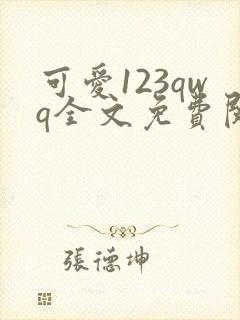 可愛123qw
q全文免費閱
張德坤